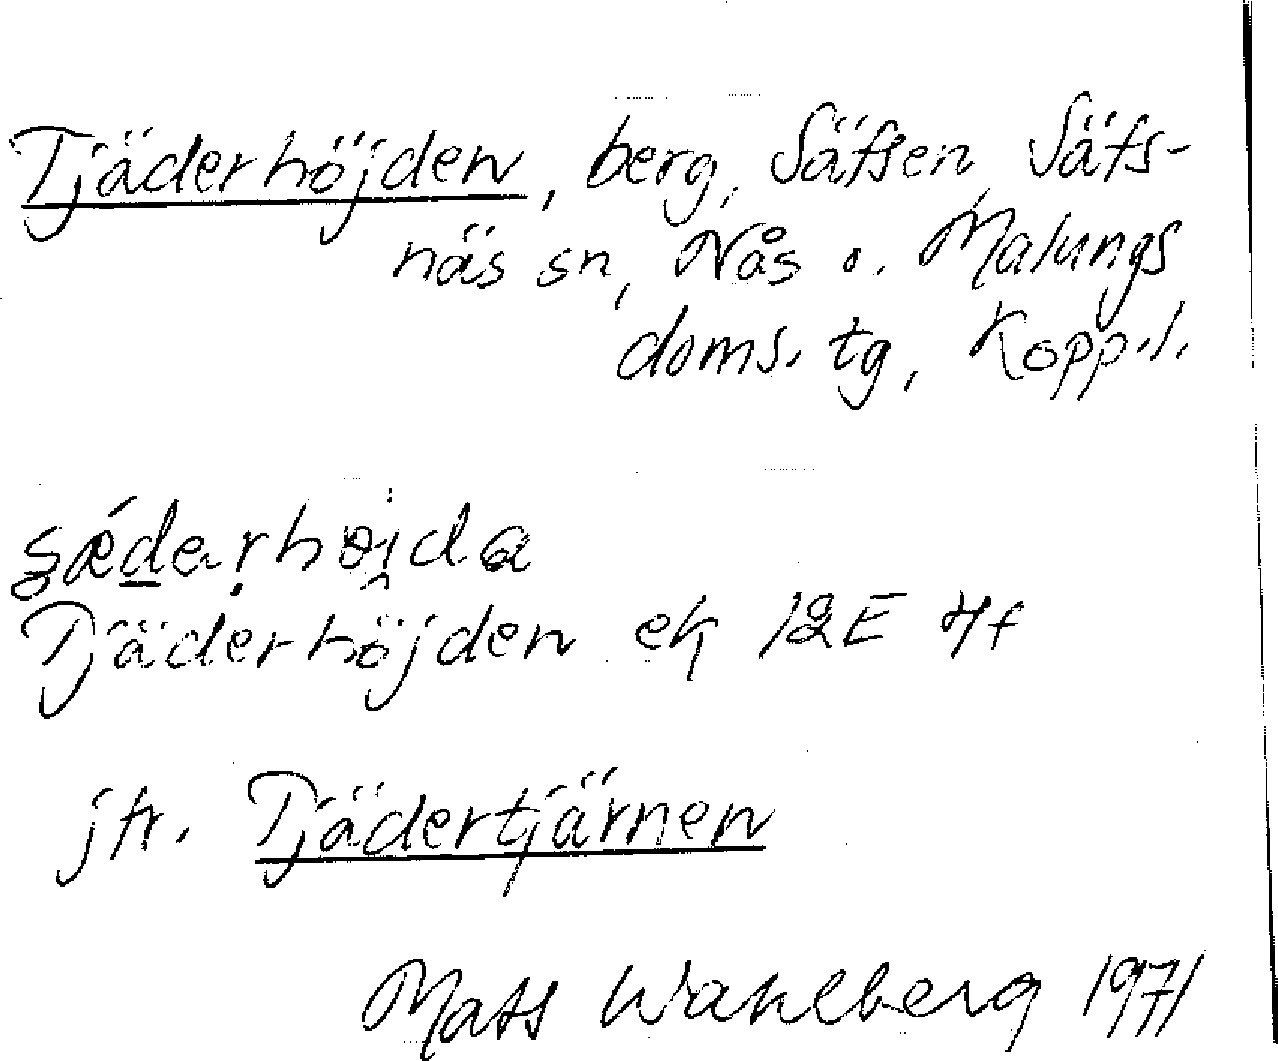 Tjäderhöjden, berg, Säfsen, Säfs-
näs sn, Nås o. Malungs
doms. tg, Kopp. l.
Tjäderhöjden ek 12E 7f
jfr. Tjädertjärnen
Mats Wahlberg 1971